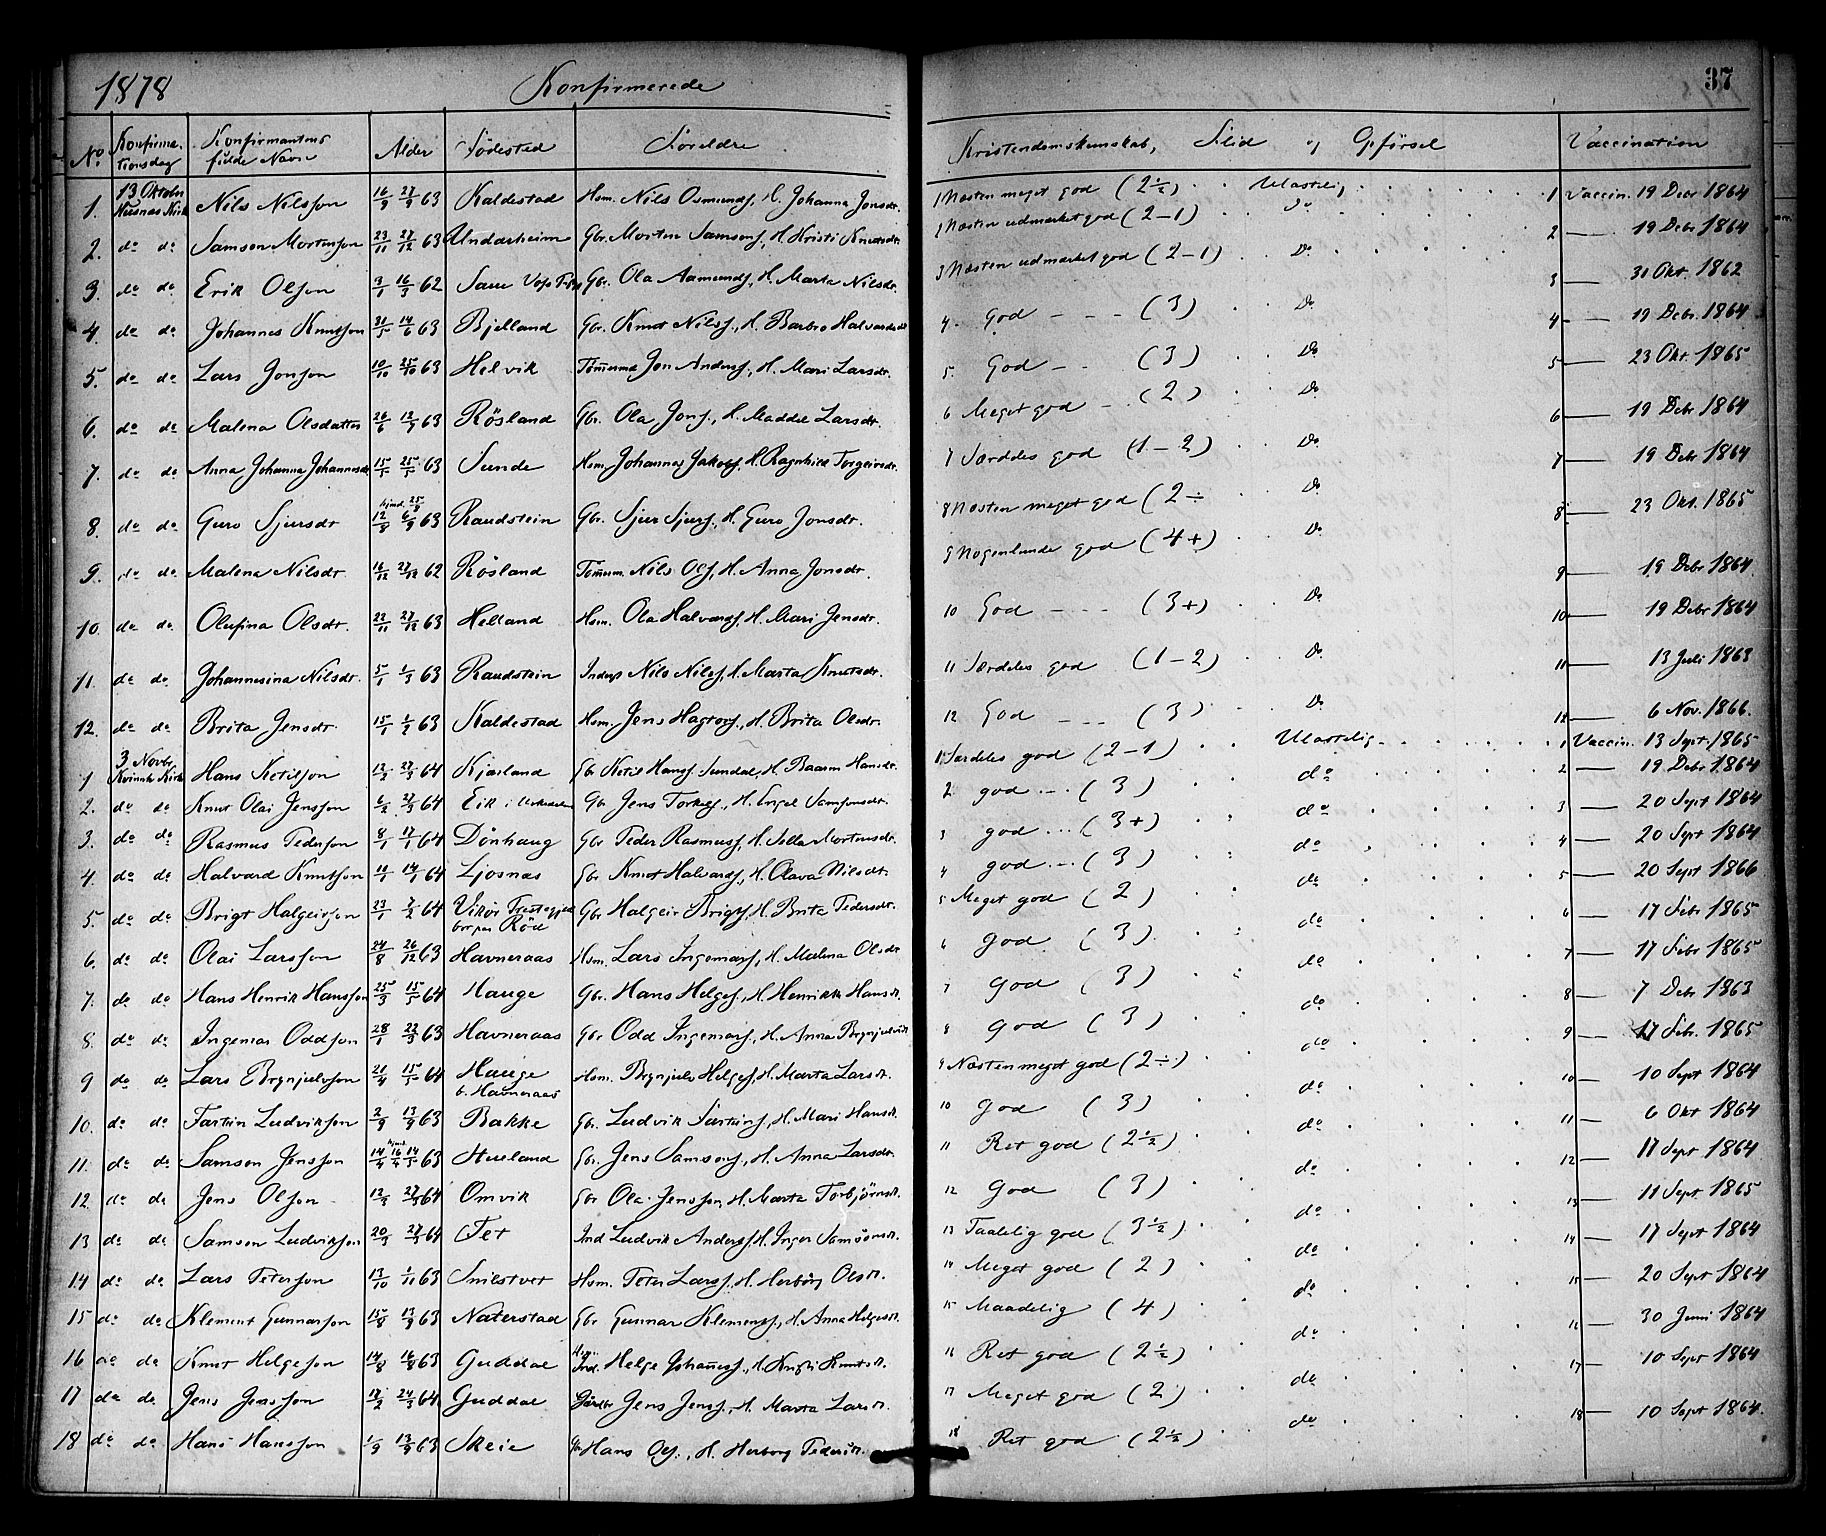 1878 Konfirmerede 37
No Konfirma- Konfirmantens Alder Födested Foreldre Kristendomskunskab, Flid og Opförsel Vaccination
tionsdag fulde Navn
13 Oktober
1. Husnes Kirk Nils Nilsson 16/9 27/9 63 Kaldestad Hsm. Nils Osmunds., H. Johanna Jonsdr. 1 Næsten meget god (2½) Ulastelig 1 Vaccin. 19 Debr 1864
2. do do Samson Mortensson 23/11 27/12 63 Undarheim Gbr. Morten Samsons., H. Kristi Knutsdr. 2 Næsten udmærket god (2-1) Do 2 — 19 Debr 1864
3. do do Erik Olson 3/1 16/3 62 Gbr. Ola Aamunds., H. Marta Nilsdr. 3 Næsten udmærket god (2-1) Do 3 — 31 Okt. 1862
4. do do Johannes Knutsson 21/5 14/6 63 Bjelland Gbr. Knut Nilss., H. Barbro Halvardsdr 4. God - - - (3) Do 4 — 19 Debr. 1864
5. do do Lars Jonson 10/10 25/10 63 Helvik Tömmerm Jon Anders., H. Mari Larsdr. 5. God - - (3) Do 5 — 23 Okt. 1865
6. do do Malena Olsdatter 26/6 12/7 63 Rösland Gbr. Ola Jons., H. Maddel Larsdr. 6 Meget god - (2) Do 6 — 19 Debr 1864
7. do do Anna Johanna Johannesdr 15/5 25/5 63 Sunde Hsm. Johannes Jakobs., H. Ragnhild Torgeirsdr. 7 Særdeles god (1-2) Do 7 — 19 Debr 1864
8. do do Guro Sjursdr 12/8 hjmd. 25/8 6/9 63 Raudstein Gbr. Sjur Sjurs., H. Guro Jonsdr. 8 Næsten meget god (2÷ Do 8 — 23 Okt. 1865
9. do do Malena Nilsdr. 16/12 27/12 62 Rösland Tömerm. Nils Ols., H. Anna Jonsdr. 9 Nogenlunde god (4+) Do 9 — 19 Debr 1864
10. do do Olufina Olsdr. 22/11 27/12 63 Helland Hsm. Ola Halvards., H. Mari Jensdr. 10 God - - - (3+) Do 10 — 19 Debr 1864
11. do do Johannesina Nilsdr. 5/1 1/3 63 Raudstein Inders Nils Nilss., H. Marta Knutsdr. 11 Særdeles god (1-2) Do 11 — 13 Juli 1863
12. do do Brita Jensdr. 15/1 2/2 63 Kaldestad Hsm. Jens Hagtors., H. Brita Olsdr. 12 God - - - (3) Do 12 — 6 Nov. 1866.
3 Novbr.
1 Kvinnh. Kirk Hans Ketilsson 12/2 27/3 64 Kjærland Gbr Ketil Hanss. Sundal, H. Baarni Hansdr. 1 Særdeles god (2-1) Ulastelig 1 Vaccin. 13 Sept. 1865
2. do do Knut Olai Jensson 6/2 27/3 64 Eik i Uskedalen Gbr Jens Torkels., H. Engel Samsonsdr. 2 god ... (3) do 2 — 19 Debr 1864
3. do do Rasmus Pederson 8/1 17/1 64 Dönhaug Gbr Peder Rasmuss., H. Sella Mortensdr. 3 god ... (3+) do 3 — 20 Sept 1864
4. do do Halvard Knutsson 10/1 14/1 64 Ljosnes Gbr Knut Halvards., H. Olava Nilsdr. 4 god ... (3) do 4 — 20 Sept 1864
5. do do Brigt Halgeirsson 23/1 7/2 64 Vikör Prestegjeld Gbr Halgeir Brigts., H. Brita Pedersdr. 5 Meget god (2) do 5 — 20 Sept 1866
bor paa Röd
6. do do Olai Larsson 24/8 26/12 63 Havneraas Hsm. Lars Ingemars., H. Malena Olsdr 6 god (3) do 6 — 17 Febr 1865
7. do do Hans Henrik Hansson 25/3 15/5 64 Hauge Gbr. Hans Helges., H. Henrikke Hansdr. 7 god (3) do 7 — 17 Febr 1865
8. do do Ingemar Oddson 28/1 22/3 63 Havneraas Gbr. Odd Ingemars., H. Anna Brynjulvsdr. 8 god (3) do 8 — 7 Debr 1863
9 do do Lars Brynjulvson 21/4 15/5 64 Hauge Hsm. Brynjulv Helges., H. Marta Larsdr. 9 Næsten meget god (2÷) do 9 — 17 Febr. 1865
b. Havneraas
10. do do Fartein Ludvikson 2/9 13/9 63 Bakke Gbr. Ludvik Farteins., H. Mari Hansdr. 10 god (3) do 10 — 10 Sept 1864
11. do do Samson Jensson 14/4 hjmd. 16/4 14/5 63 Hueland Gbr. Jens Samsons., H. Anna Larsdr. 11 Ret god (2½) do 11 — 6 Okt 1864
12 do do Jens Olson 12/2 27/3 64 Omvik Gbr Ola Jensson, H. Marta Torbjörnsdr. 12 god (3) do 12 — 17 Sept 1864
13 do do Samson Ludvikson 20/3 27/3 64 Tet Ind Ludvik Anders., H. Inger Samsonsdr. 13 Taalelig god (3½) do 13 — 11 Sept. 1865
14 do do Lars Peterson 13/10 1/11 63 Smiestvet Hsm. Peter Larss., H. Herborg Olsdr. 14 Meget god (2) do 14 — 17 Sept 1864
15 do do Klement Gunnarson 15/8 13/9 63 Naterstad Gbr Gunnar Klements., H. Anna Helgesdr. 15 Maadelig (4) do 15 — 20 Sept 1864
16 do do Knut Helgeson 14/8 16/8 63 Guddal Ind. Helge Johanness., H. Kristi Knutsdr. 16 Ret god (2½) do 16 — 30 Juni 1864
17 do do Jens Jensson 12/2 24/3 64 Guddal Jens Jenss., H. Marta Larsdr. 17 Meget god (2) do 17 — 10 Sept 1864
18 do do Hans Hansson 1/9 13/9 63 Skeie Gbr Hans Ols., H. Herborg Pedersdr. 18 Ret god (2½) do 18 — 10 Sept 1864.